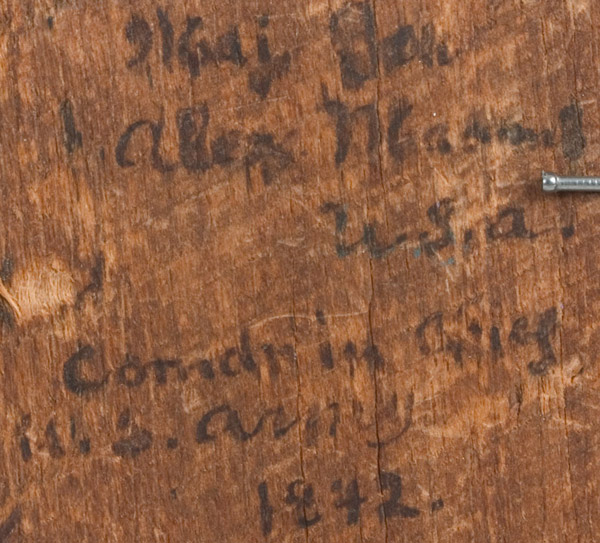 Maj Gen
Alex Macomb
U.S.A.
Comdr in Chief
U.S. Army
1842.